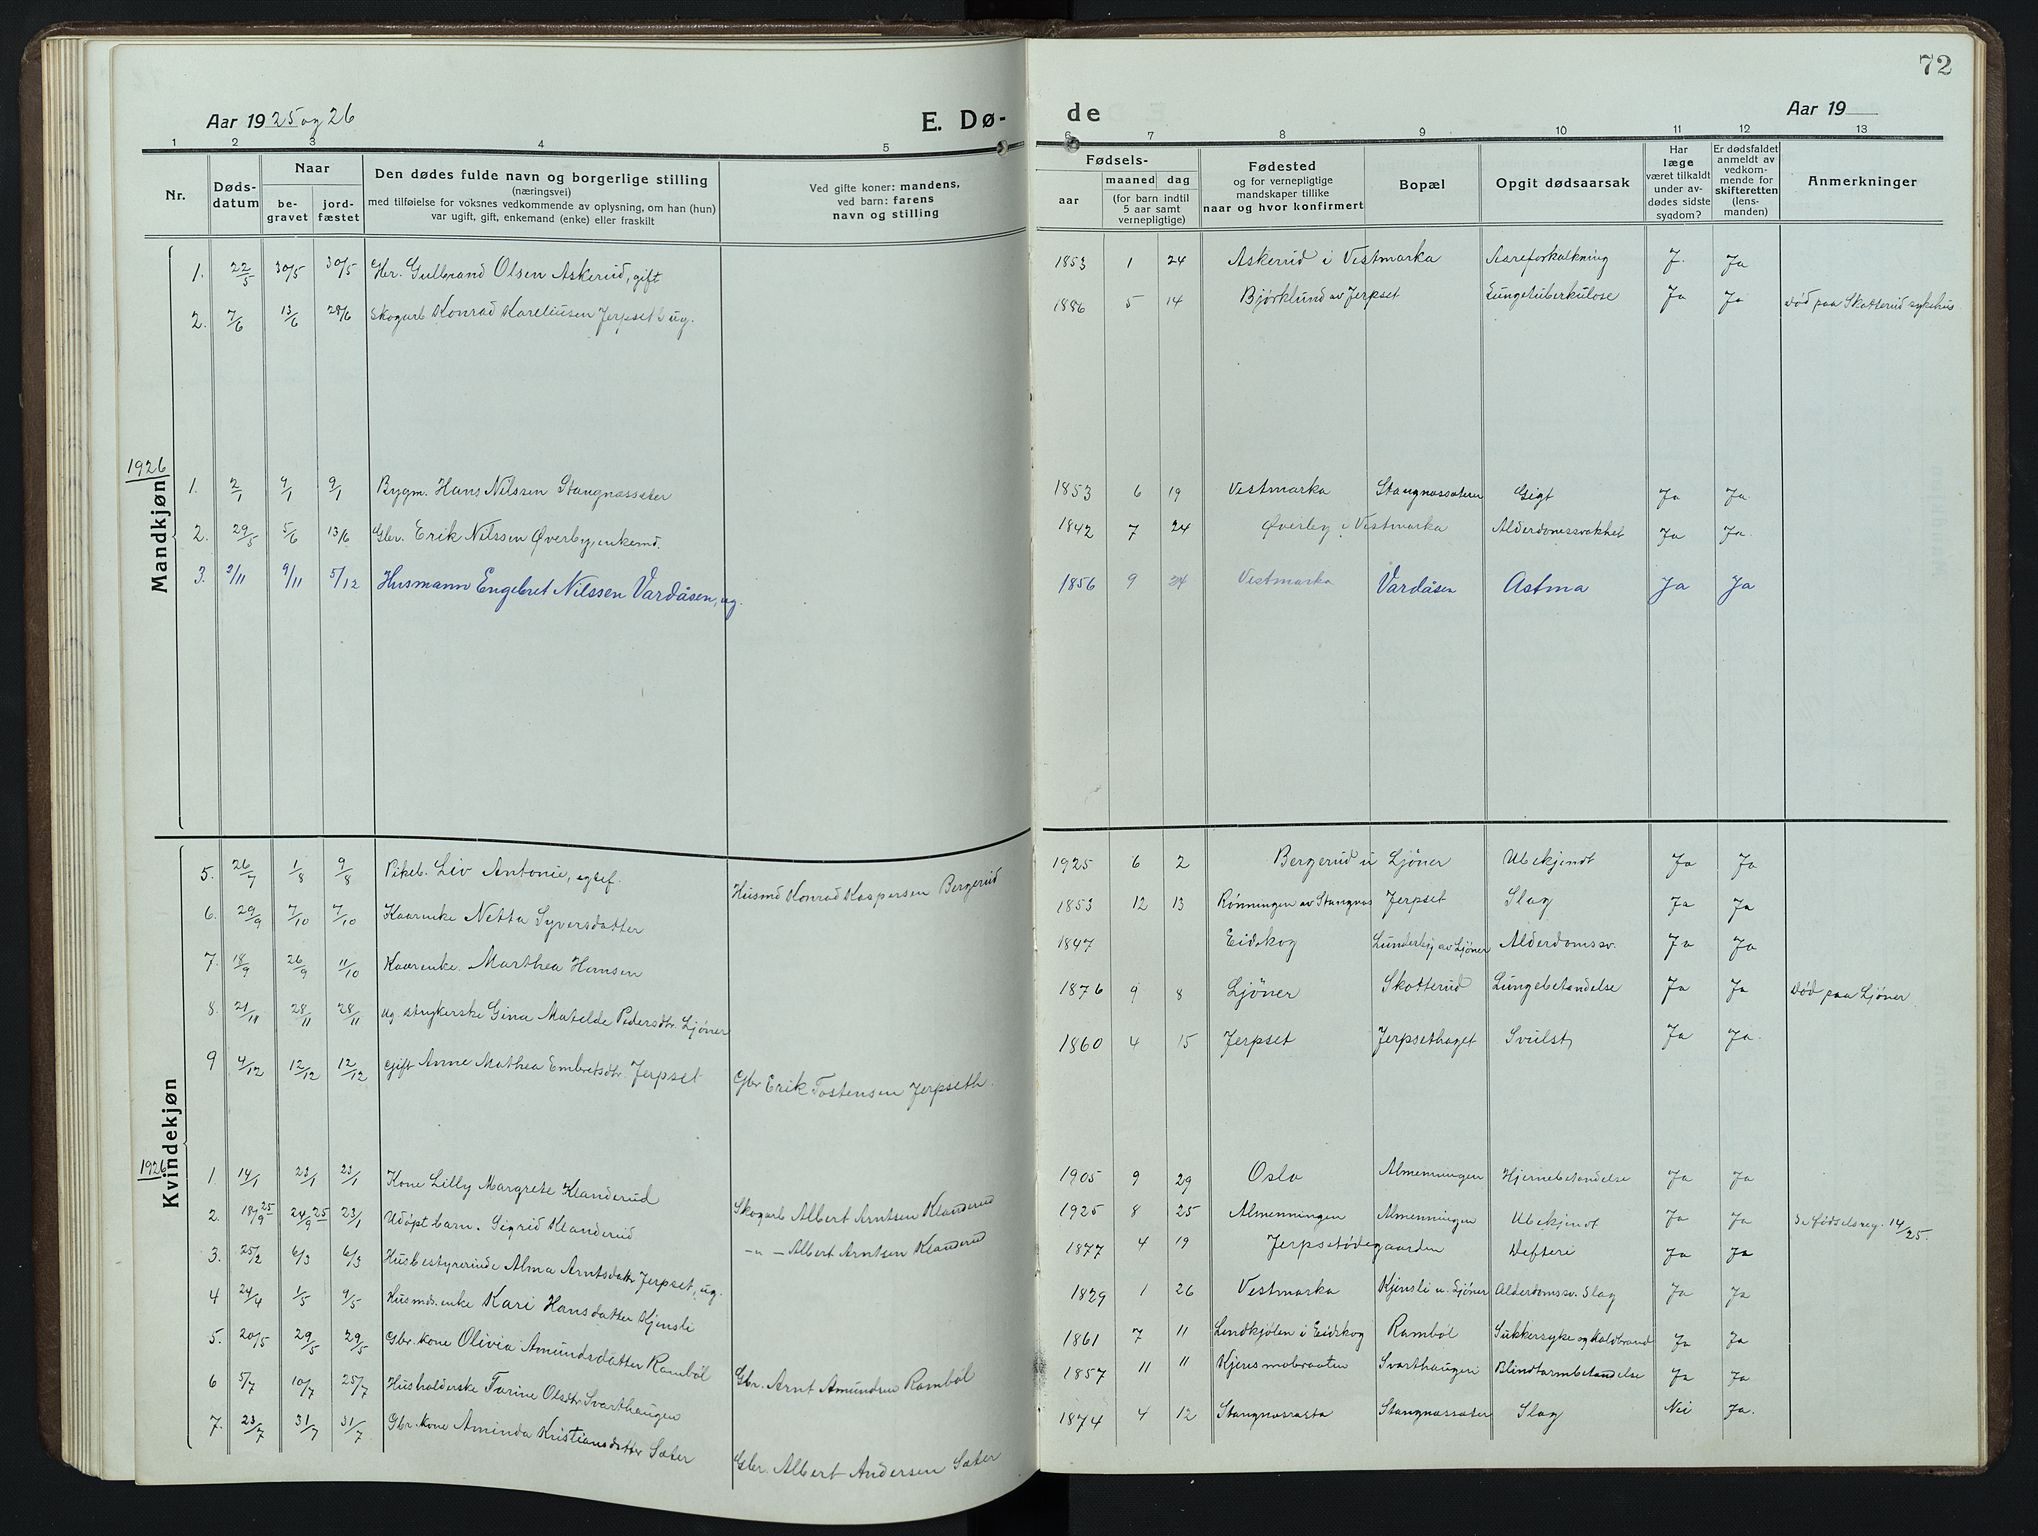 72
Aar 1925 og 26
E. Dø-
de
Aar 19
1 2 3 4 5 6 7 8 9 10 11 12 13
Nr.
Døds-
datum
Naar
be-
gravet
jord-
fæstet
Den dødes fulde navn og borgerlige stilling
(næringsvei)
med tilføielse for voksnes vedkommende av oplysning, om han (hun)
var ugift, gift, enkemand (enke) eller fraskilt
Ved gifte koner: mandens,
ved barn: farens
navn og stilling
Fødsels-
aar
maaned dag
(for barn indtil
5 aar samt
vernepligtige)
Fødested
og for vernepligtige
mandskaper tillike
naar og hvor konfirmert
Bopæl
Opgit dødsaarsak
Har
læge
været tilkaldt
under av-
dødes sidste
sygdom?
Er dødsfaldet
anmeldt av
vedkom-
mende for
skifteretten
(lens-
manden)
Anmerkninger
Mandkjøn
1. 22/5 30/5 30/5 Gbr. Gulbrand Olsen Askerud, gift 1853 1 24 Askerud i Vestmarka Aareforkalkning J. Ja
2. 7/6 13/6 28/6 Skogarb Konrad Kareliusen Jerpset ug. 1886 5 14 Bjørklund av Jerpset Lungetuberkulose Ja Ja død paa Skotterud sykehus
1926
1. 2/1 9/1 9/1 Bygm. Hans Nilssen Stangnæssæter 1853 6 19 Vestmarka Stangnæssæteren Gigt Ja Ja.
2. 29/5 5/6 13/6 Gbr. Erik Nilssen Øverby, enkemd. 1842 7 24 Øverby i Vestmarka Alderdomssvakhet Ja Ja.
3. 2/11 9/11 5/12 Husmann Engebret Nilssen Vardåsen, ug. 1856 9 24 Vestmarka Vardåsen Astma Ja Ja
Kvindekjøn
5. 26/7 1/8 9/8 Pikeb. Liv Antonie, egtef. Husmd Konrad Kaspersen Bergerud 1925 6 2 Bergerud u Ljöner Ubekjendt Ja Ja
6. 29/9 7/10 7/10 Kaarenke Netta Syversdatter 1853 12 13 Rønningen av Stangnæs Jerpset Slag Ja Ja
7. 18/9 26/9 11/10 Kaarenke. Marthea Hansen 1847 Eidskog Lunderby av Ljöner Alderdomssv. Ja Ja
8. 21/11 28/11 28/11 ug. strykerske Gina Matelde Pedersdtr. Ljöner 1876 9 8 Ljöner Skotterud Lungebetændelse Ja Ja død paa Ljöner
9 4/12 12/12 12/12 gift Anne Mathea Embretsdtr. Jerpset Gbr Erik Tostensen Jerpseth. 1860 4 15 Jerpset Jerpsethaget Svulst Ja Ja.
1926
1 14/1 23/1 23/1 Kone Lilly Margrete Klanderud Skogarb Albert Arntsen Klanderud 1905 9 29 Oslo Almenningen Hjernebetændelse Ja Ja
2. 18/9 25 24/9 25 23/1 Udöpt barn. Sigrid Klanderud -"- Albert Arntsen Klanderud 1925 8 25 Almenningen Almenningen Ubekjendt Ja Ja Se fødselsreg. 14/25.
3. 25/2 6/3 6/3 Husbestyrerinde Alma Arntsdattr Jerpset, ug. 1877 4 19 Jerpsetødegaarden Defteri Ja Ja
4 24/4 1/5 9/5 Husmds. enke Kari Hansdatter Kjensli 1829 1 26 Vestmarka Kjensli u. Ljöner Alderdomssv. Slag Ja Ja
5. 20/5 29/5 29/5 Gbr. kone Olivia Amundsdatter Ramböl Gbr. Arnt Amundsen Ramböl 1861 7 11 Lendkjölen i Eidskog Ramböl Sukkersyke og Koldbrand Ja Ja
6 5/7 10/7 25/7 Husholderske Turine Olsdtr Svarthaugen 1857 11 11 Kjensmobraaten Svarthaugen Blindtarmbetændelse Ja Ja
7. 23/7 31/7 31/7 Gbr. kone Aminda Kristiansdatter Sæter Gbr. Albert Andersen Sæter 1874 4 12 Stangnæssæter Slag Nei Ja.